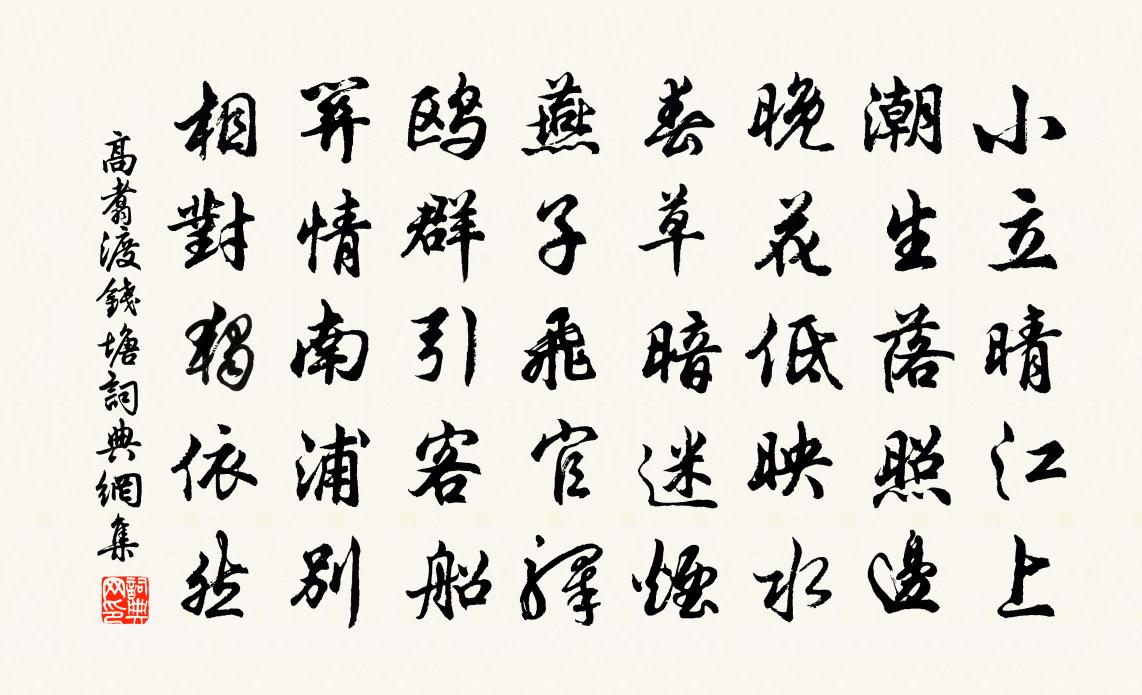 小立晴江上
潮生落照邊
晚花低映水
春草暗迷煙
燕子飛官驛
鷗群引客船
羿情南浦別
相對獨依然
高翥渡錢塘詞典網集
詞典網印